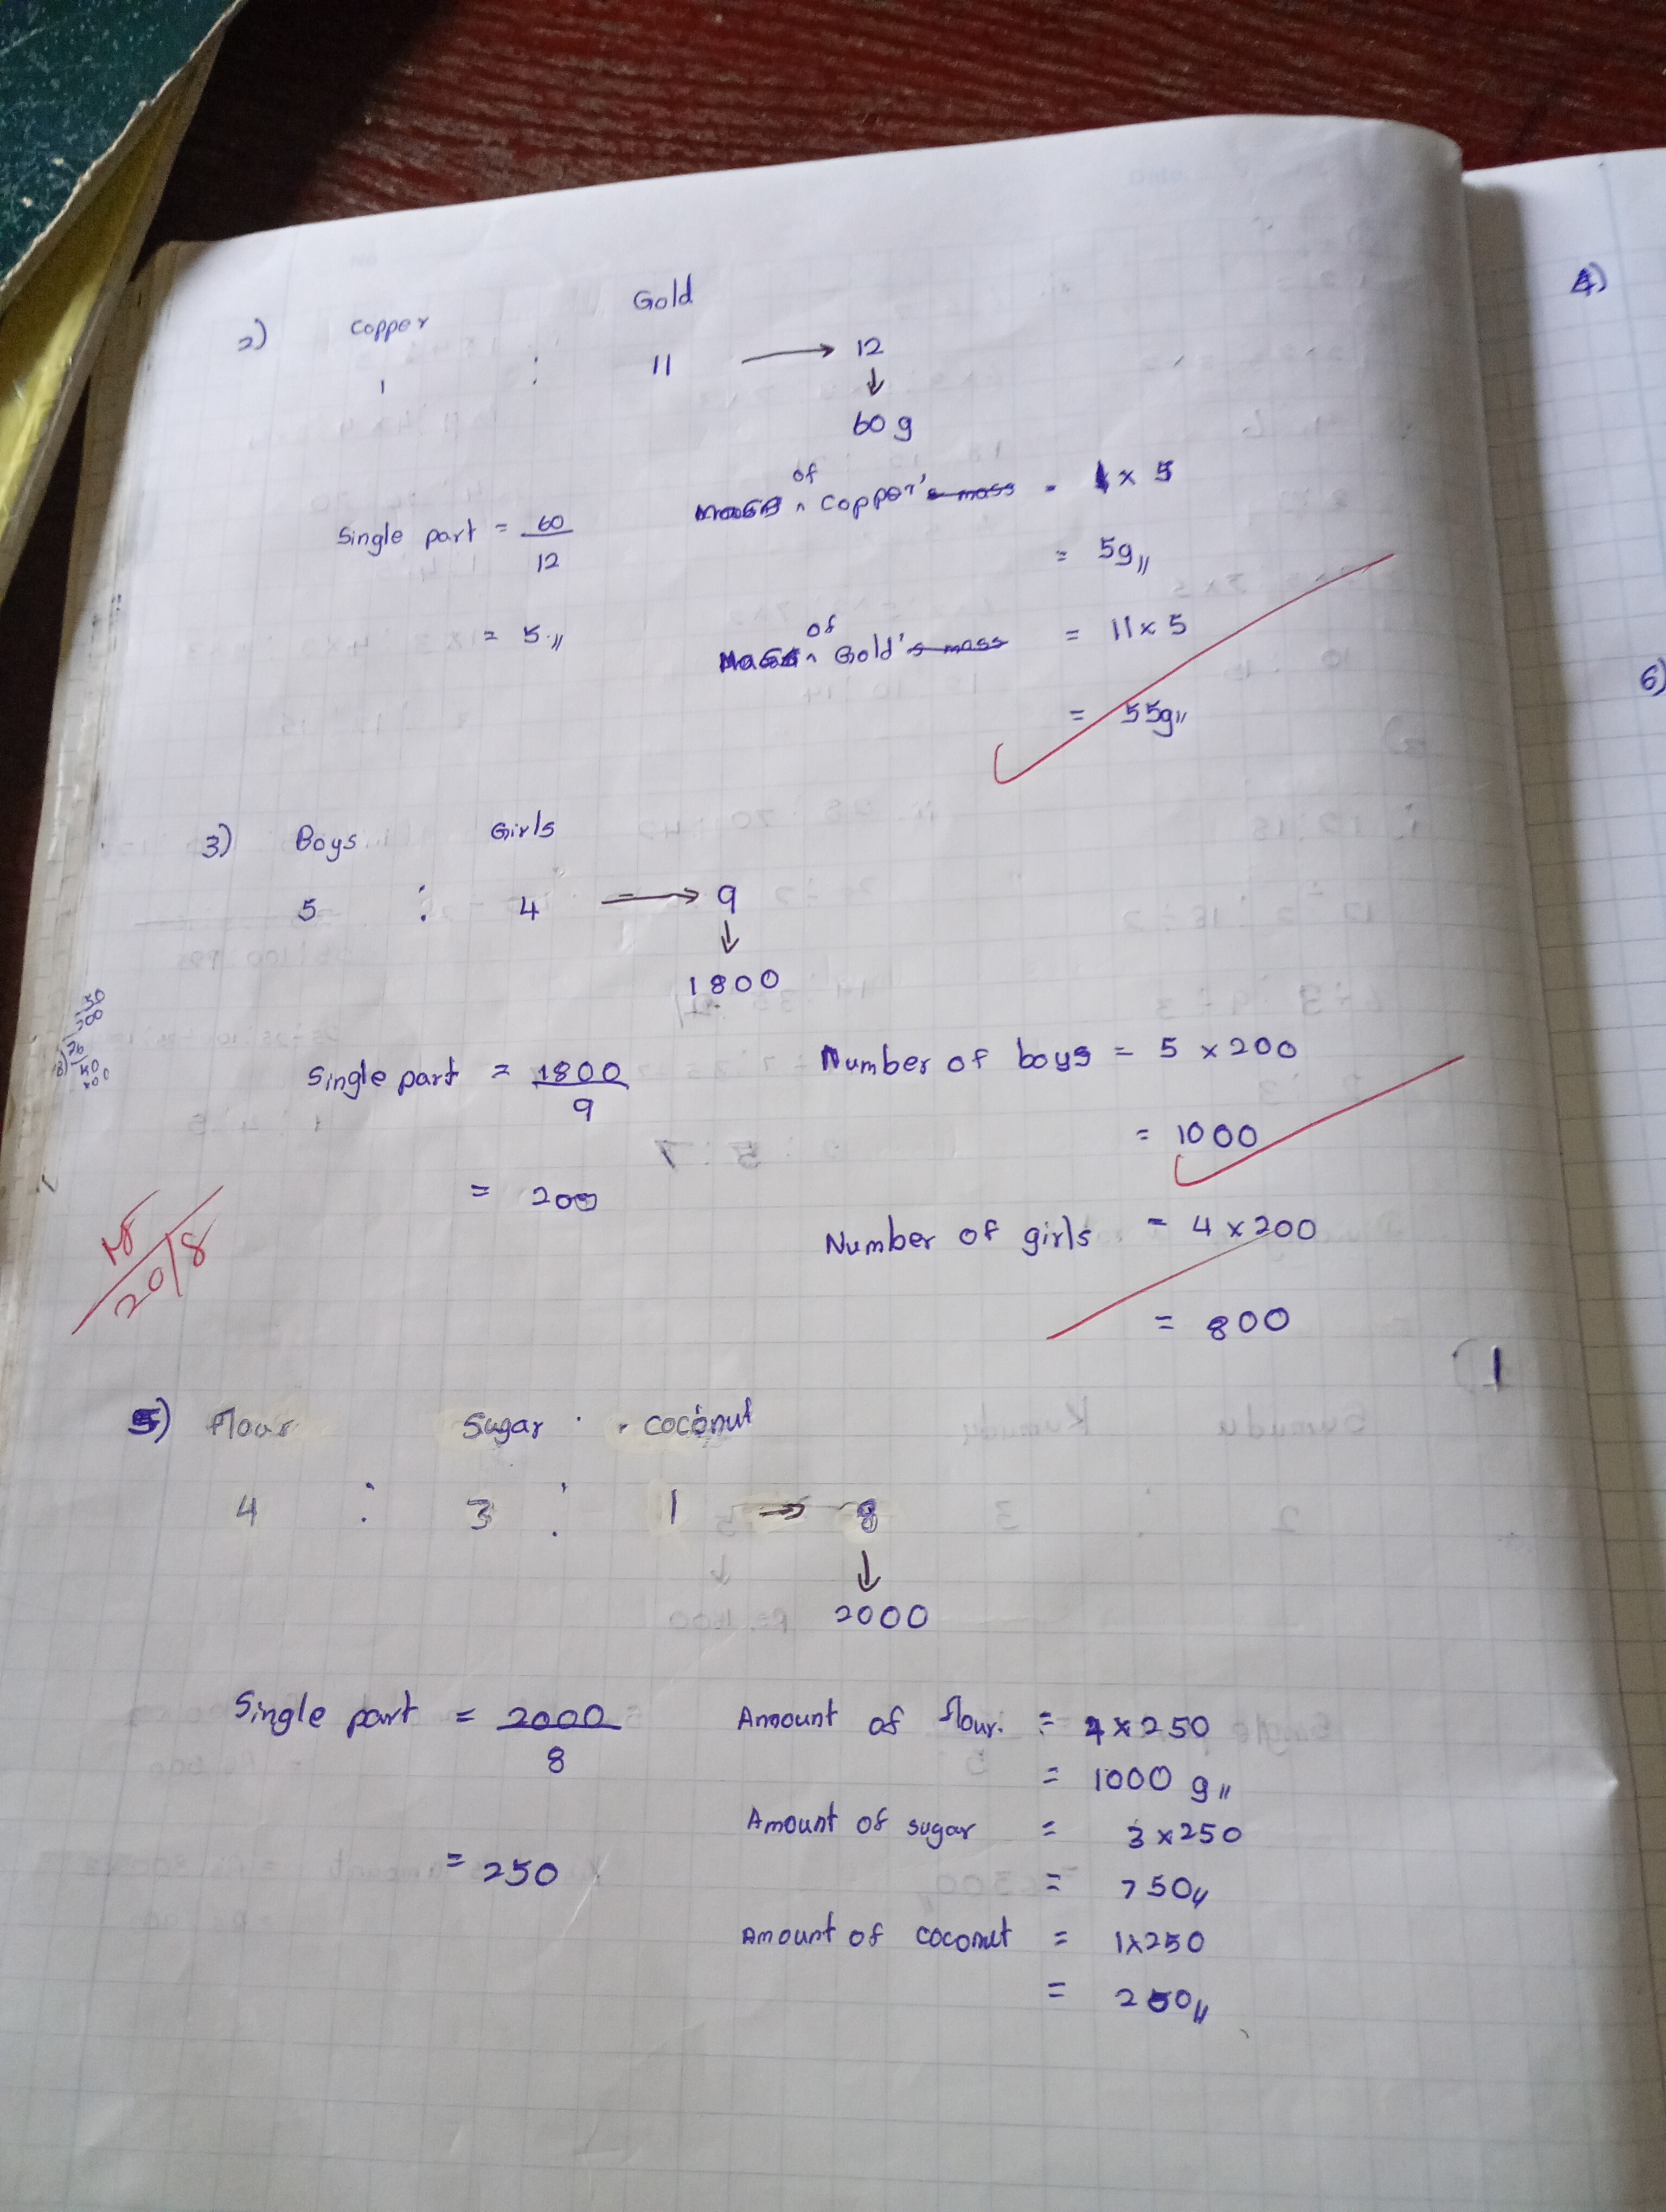 2) Copper Gold
1 : 11 → 12
↓
60 g
Single part = 60/12
= 5
Mass of Copper's mass = 1 x 5
= 5g
Mass of Gold's mass = 11 x 5
= 55g
3) Boys Girls
5 : 4 → 9
↓
1800
Single part = 1800/9
= 200
Number of boys = 5 x 200
= 1000
Number of girls = 4 x 200
= 800
20/8
5) Flour Sugar coconut
4 : 3 : 1 → 8
↓
2000
Single part = 2000/8
= 250
Amount of flour = 4 x 250
= 1000 g
Amount of sugar = 3 x 250
= 750
Amount of coconut = 1 x 250
= 250
4)
6)